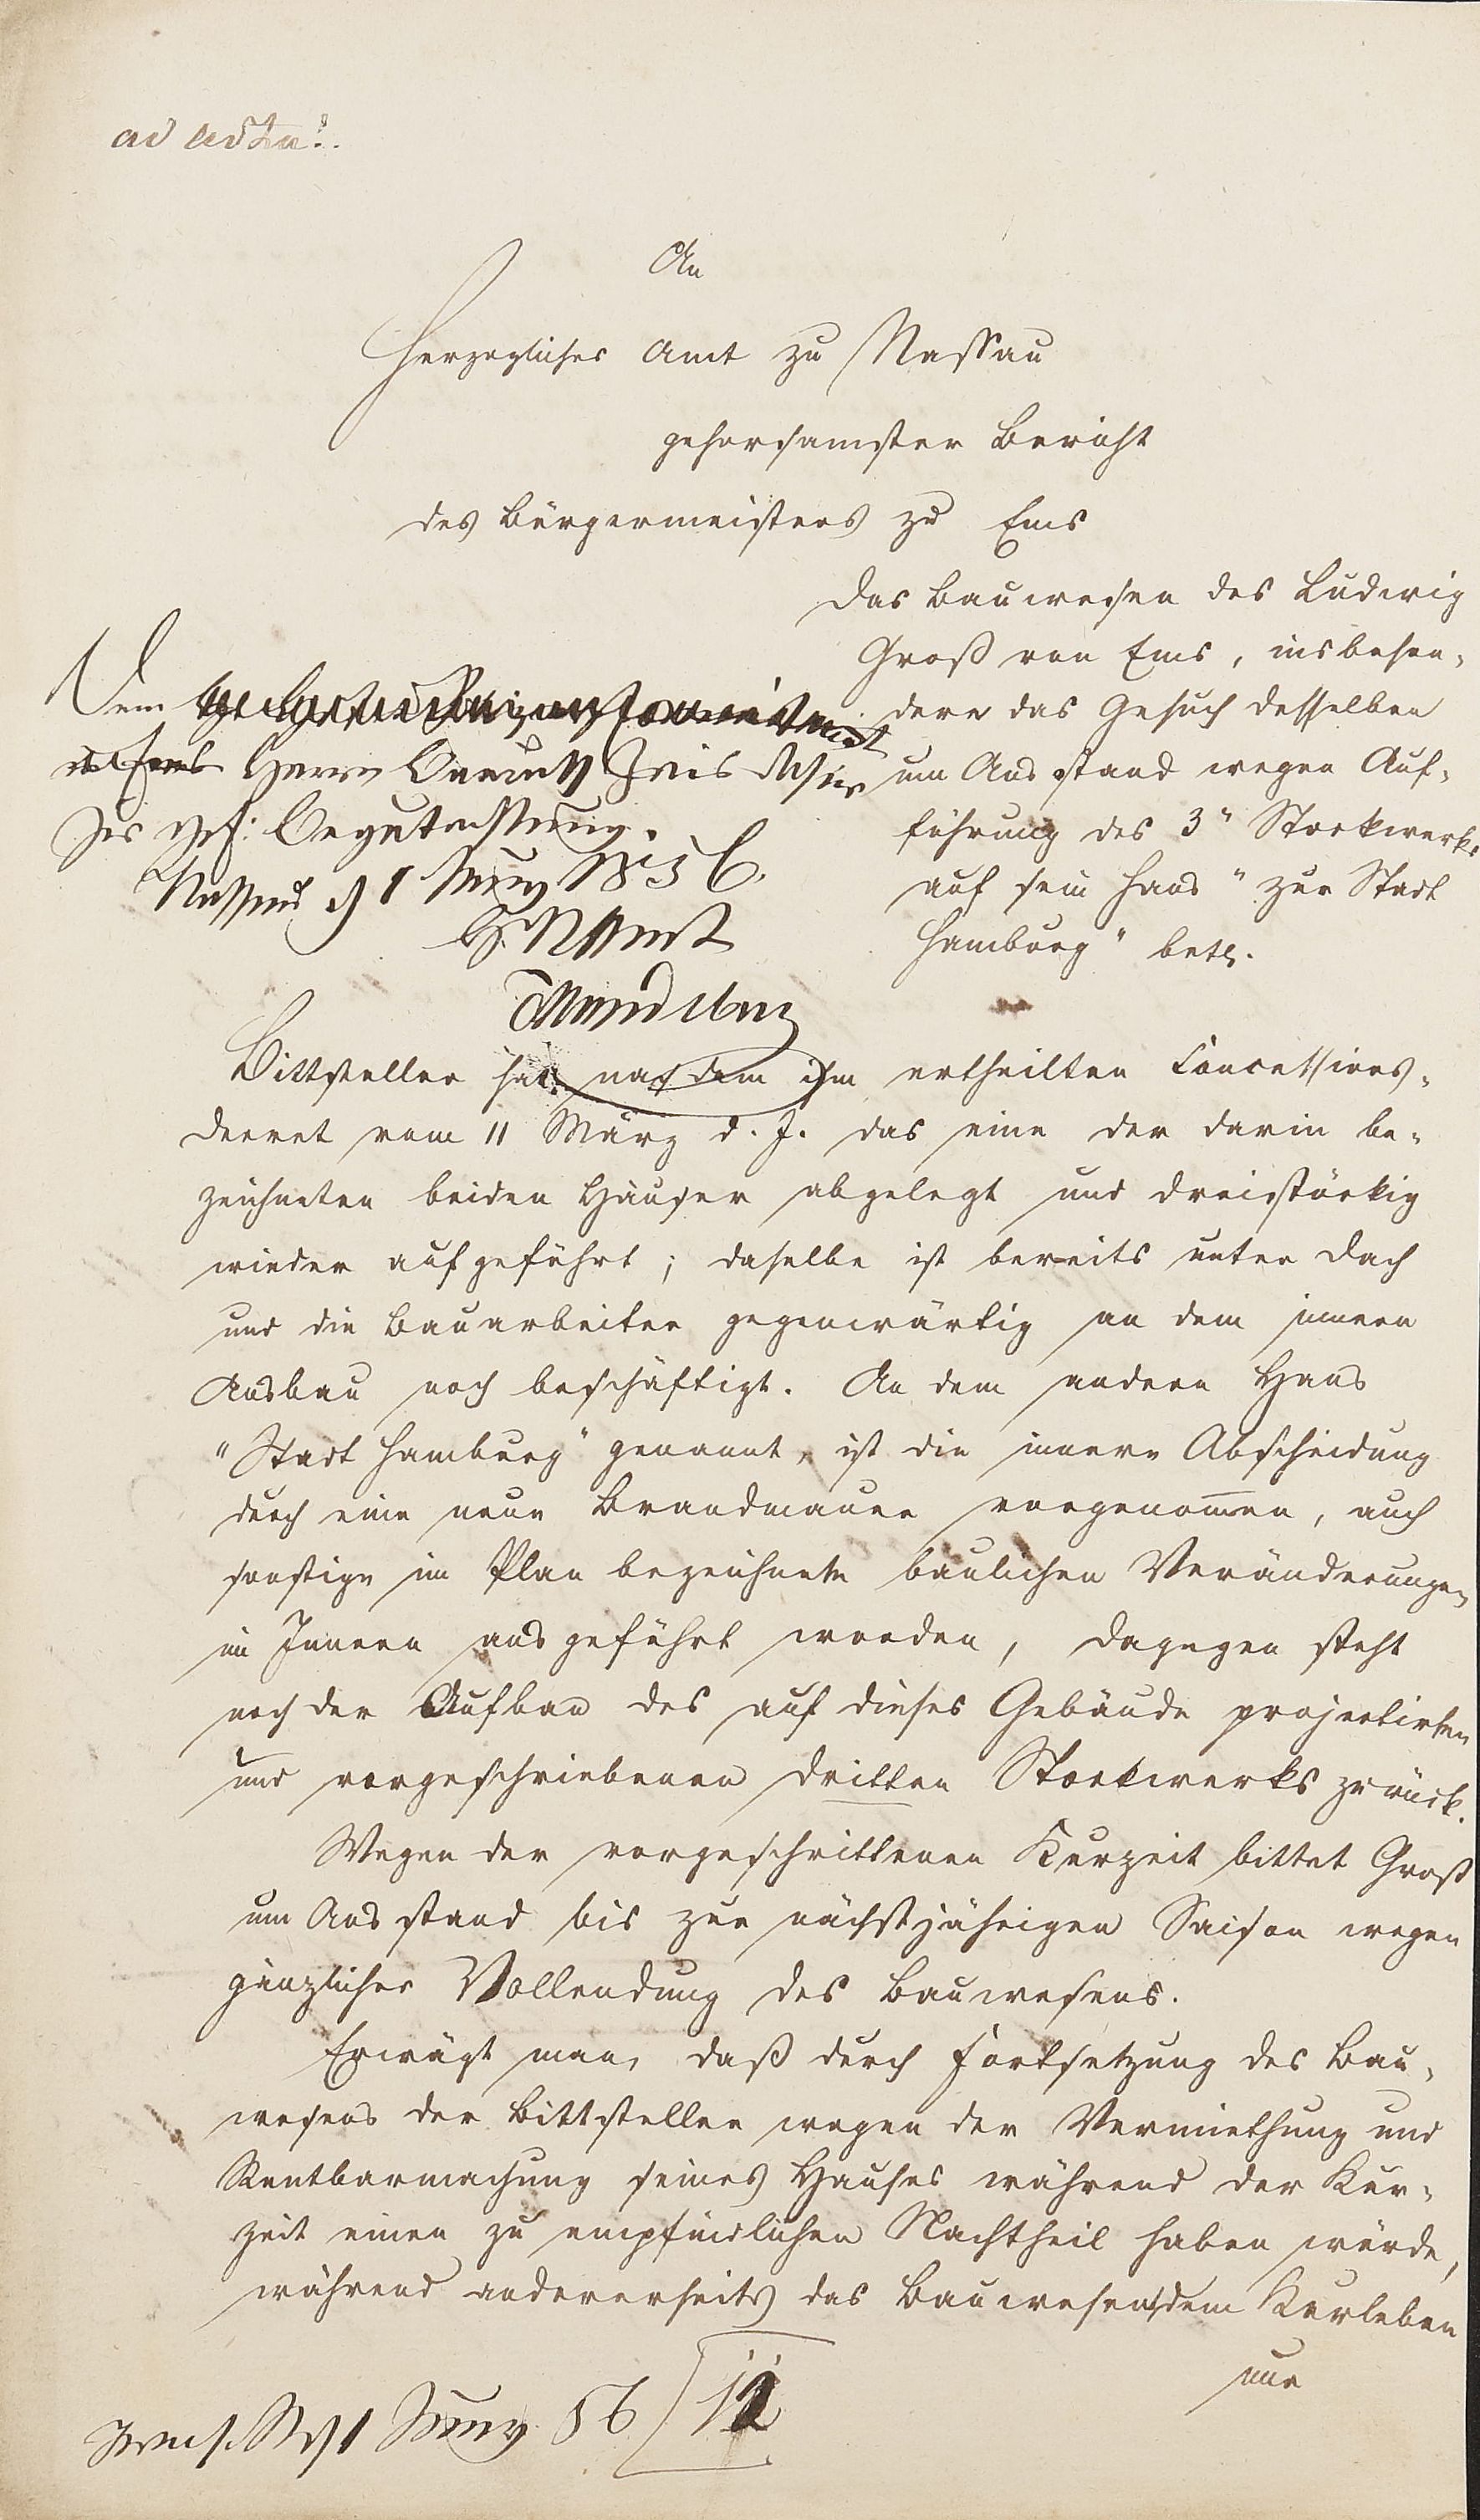 ad acta!.
An
Herzogliches Amt zu Nassau
gehorsamster Bericht
des Bürgermeisters zu Ems
Das Bauwesen des Ludwig
Groß von Ems, insbeson-
dere das Gesuch desselben
um Ausstand wegen Auf-
führung des 3" Stockwerks
auf sein Haus "zur Stadt
Hamburg" betr.
Dem
Herrn
zur gef: Begutachtung.
Nassau d 1 Juny 1856.
H. N. Amt
Bittsteller hat nach dem ihm ertheilten Concessions-
decret vom 11 März d. J. das eine der darin be-
zeichneten beiden Häuser abgelegt und dreistöckig
wieder aufgeführt; daselbe ist bereits unter Dach
und die Bauarbeiter gegenwärtig an dem innern
Ausbau noch beschäftigt. An dem andern Haus
"Stadt Hamburg" genannt, ist die innere Abscheidung
durch eine neue Brandmauer vorgenommen, auch
sonstige im Plan bezeichnete baulichen Veränderungen
im Innern ausgeführt worden, dagegen steht
noch der Aufbau des auf dieses Gebäude projectirten
und vorgeschriebenen dritten Stockwerks zurück.
Wegen der vorgeschrittenen Kurzeit bittet Groß
um Ausstand bis zur nächstjährigen Saison wegen
gänzlicher Vollendung des Bauwesens.
Erwägt man, daß durch Fortsetzung des Bau-
wesens der Bittsteller wegen der Vermiethung und
Rentbarmachung seines Hauses während der Kur-
zeit einen zu empfindlichen Nachtheil haben würde,
während andererseits das Bauwesen dem Kurleben
nur
Juny 56